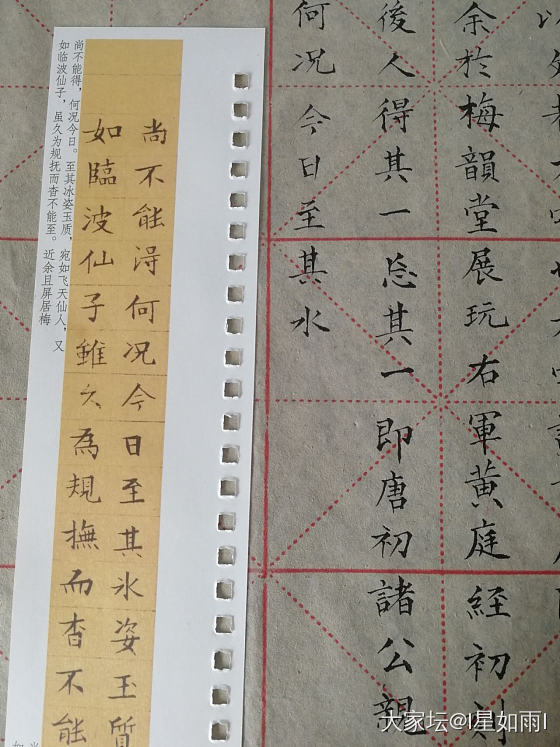 以
余於梅韻堂展玩右軍黄庭經初刻
後人得其一忘其一即唐初諸公親
何况今日至其水
尚不能得何况今日至其冰姿玉質
如臨波仙子雖久為規撫而杳不能
尚不能得，何况今日。至其冰姿玉质，宛如飞天仙人，又
如临波仙子，虽久为规抚而杳不能至。近余且屏居梅
大家坛@I星如雨I